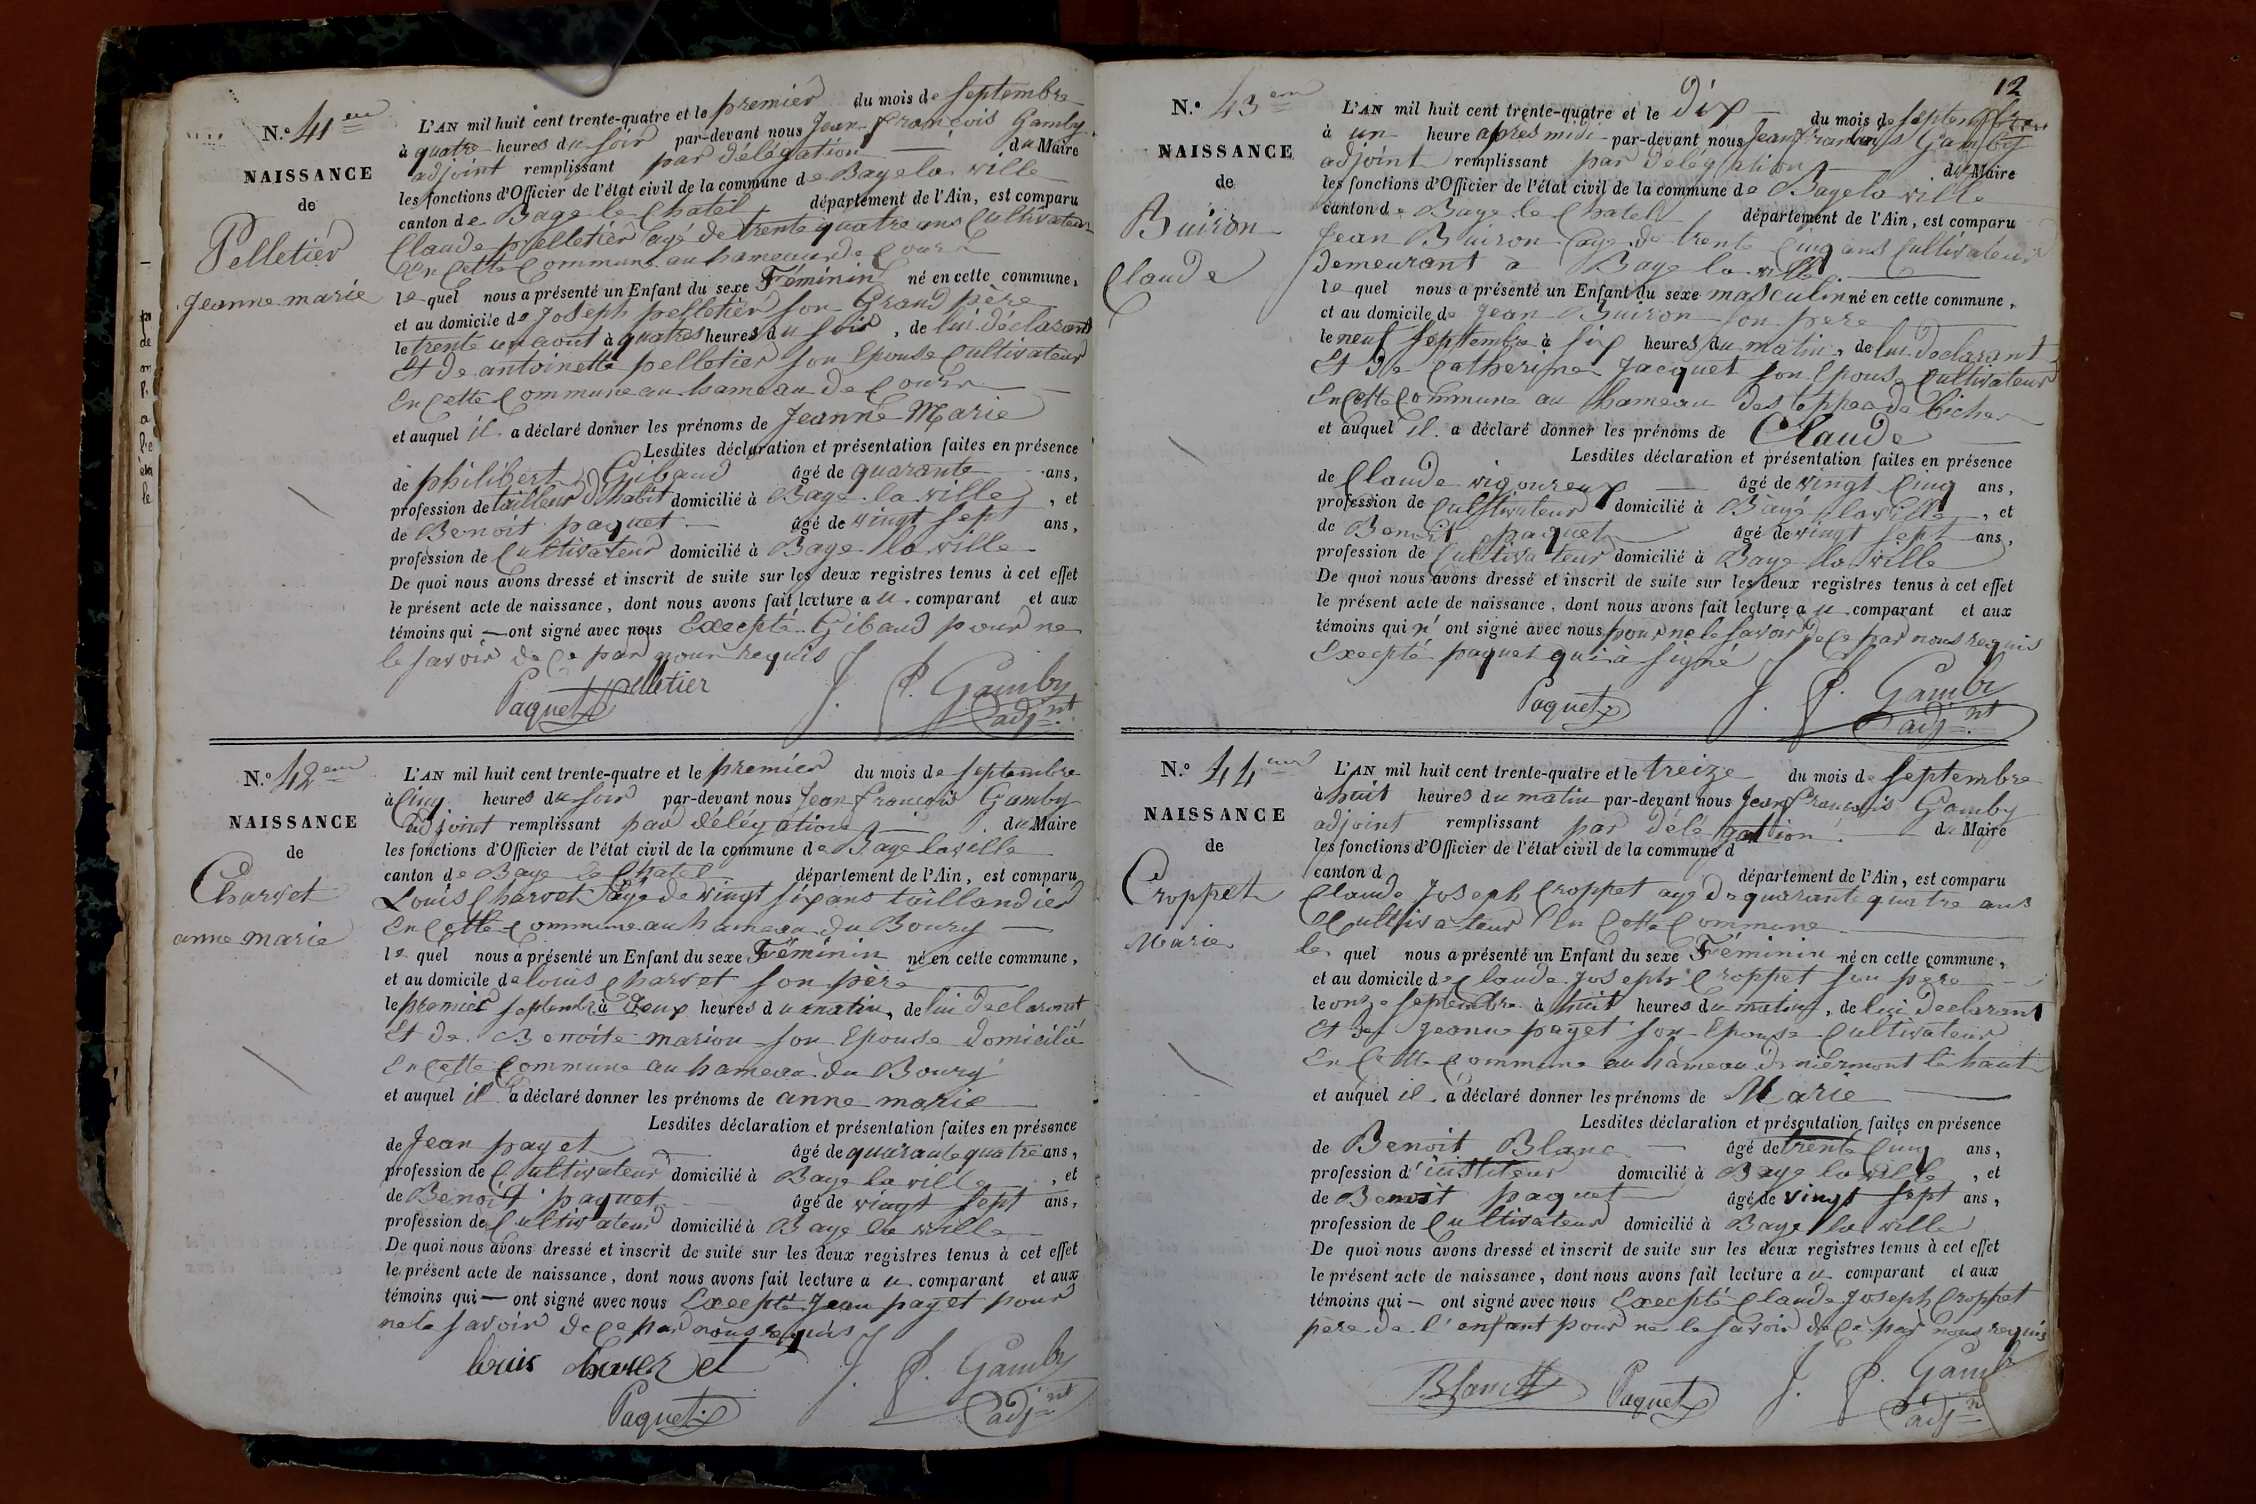 N.º 41eme
NAISSANCE
de
Pelletier
Jeanne marie
L'AN mil huit cent trente-quatre et le premier du mois de septembre
à quatre heures du soir par-devant nous Jean françois Gamby
adjoint remplissant par délégation du Maire
les fonctions d'Officier de l'état civil de la commune de Bage la ville
canton de Bage le Chatel département de l'Ain, est comparu
Claude pelletier agé de trente quatre ans Cultivateur
En Cette Commune au hameau de
le quel nous a présenté un Enfant du sexe Féminin né en cette commune,
et au domicile de Joseph pelletier son Grand père
le trente un aout à quatres heures du soir, de lui déclarant
Et de antoinette pelletier son Epouse Cultivateur
En Cette Commune au hameau de
et auquel il a déclaré donner les prénoms de Jeanne Marie
Lesdites déclaration et présentation faites en présence
de philibert Gibaud âgé de quarante ans,
profession de tailleur d'habit domicilié à Bage la ville, et
de Benoit paquet âgé de vingt sept ans,
profession de Cultivateur domicilié à Bage la ville
De quoi nous avons dressé et inscrit de suite sur les deux registres tenus à cet effet
le présent acte de naissance, dont nous avons fait lecture au comparant et aux
témoins qui — ont signé avec nous Excepté Gibaud pour ne
le savoir de Ce par nous requis
Paquet pelletier J. f. Gamby
adjnt
N.º 42eme
NAISSANCE
de
Charvet
anne marie
L'AN mil huit cent trente-quatre et le premier du mois de septembre
à Cinq heures du soir par-devant nous Jean françois Gamby
adjoint remplissant par délégation du Maire
les fonctions d'Officier de l'état civil de la commune de Bage la ville
canton de Bage le Chatel département de l'Ain, est comparu
Louis Charvet agé de vingt six ans taillandier
En Cette Commune au hameau du Boury
le quel nous a présenté un Enfant du sexe Féminin né en cette commune,
et au domicile de louis Charvet son père
le premier septembre à Deux heures du matin, de lui declarant
Et de Benoite marion son Epouse domicilié
En Cette Commune au hameau du Boury
et auquel il a déclaré donner les prénoms de anne marie
Lesdites déclaration et présentation faites en présence
de Jean payet âgé de quarante quatre ans,
profession de Cultivateur domicilié à Bage la ville, et
de Benoit paquet âgé de vingt sept ans,
profession de Cultivateur domicilié à Bage la ville
De quoi nous avons dressé et inscrit de suite sur les deux registres tenus à cet effet
le présent acte de naissance, dont nous avons fait lecture au comparant et aux
témoins qui — ont signé avec nous Excepté Jean payet pour
ne le savoir de Ce par nous requis
louis charvet J. f. Gamby
Paquet adjnt
12
N.º 43eme
NAISSANCE
de
Buiron
Claude
L'AN mil huit cent trente-quatre et le Dix du mois de septembre
à un heure après midi par-devant nous Jean françois Gamby
adjoint remplissant par délégation du Maire
les fonctions d'Officier de l'état civil de la commune de Bage la ville
canton de Bage le Chatel département de l'Ain, est comparu
Jean Buiron agé de trente Cinq ans Cultivateur
Demeurant à Bage la ville
le quel nous a présenté un Enfant du sexe masculin né en cette commune,
et au domicile de Jean Buiron son pere
le neuf septembre à six heures du matin, de lui declarant
Et de Catherine Jacquet son Epouse Cultivateur
En Cette Commune au hameau des teppes de biches
et auquel il a déclaré donner les prénoms de Claude
Lesdites déclaration et présentation faites en présence
de Claude vigoureux âgé de vingt Cinq ans,
profession de Cultivateur domicilié à Bagé la ville, et
de Benoit paquet âgé de vingt sept ans,
profession de Cultivateur domicilié à Bage la ville
De quoi nous avons dressé et inscrit de suite sur les deux registres tenus à cet effet
le présent acte de naissance, dont nous avons fait lecture au comparant et aux
témoins qui n' ont signé avec nous pour ne le savoir de Ce par nous requis
Excepté paquet qui à signé
Paquet J. f. Gamby
adjnt
N.º 44eme
NAISSANCE
de
Croppet
Marie
L'AN mil huit cent trente-quatre et le treize du mois de septembre
à huit heures du matin par-devant nous Jean françois Gamby
adjoint remplissant par délégation du Maire
les fonctions d'Officier de l'état civil de la commune d
canton d département de l'Ain, est comparu
Claude Joseph Croppet agé de quarante quatre ans
Cultivateur En Cette Commune
le quel nous a présenté un Enfant du sexe Féminin né en cette commune,
et au domicile de Claude Joseph Croppet son père
le onze septembre à huit heures du matin, de lui declarant
Et de Jeanne payet son Epouse Cultivateur
En Cette Commune au hameau de niermont le haut
et auquel il a déclaré donner les prénoms de Marie
Lesdites déclaration et présentation faites en présence
de Benoit Blanc âgé de trente Cinq ans,
profession d'istituteur domicilié à Bage la ville, et
de Benoit paquet âgé de vingt sept ans,
profession de Cultivateur domicilié à Bage la ville
De quoi nous avons dressé et inscrit de suite sur les deux registres tenus à cet effet
le présent acte de naissance, dont nous avons fait lecture au comparant et aux
témoins qui — ont signé avec nous Excepté Claude Joseph Croppet
père de l'enfant pour ne le savoir de Ce par nous requis
Blanc Paquet J. f. Gamb
adjn